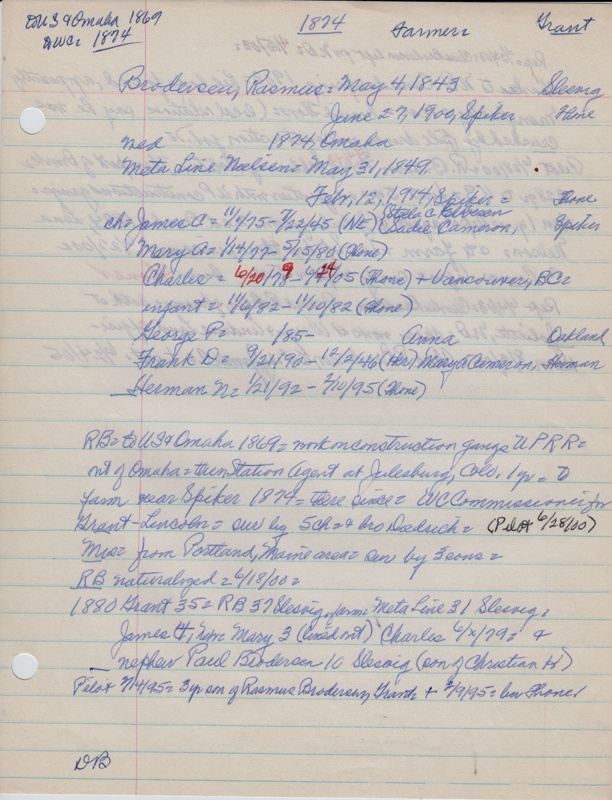 to US & Omaha 1869 1874 Farmer= Grant
WC= 1874
Brodersen, Rasmus= May 4, 1843 Slesvig
June 27, 1900, Spiker Hone
1874, Omaha
Meta Line Nielsen= May 31, 1849,
Febr, 12, 1914, Spiker = Hone
ch= James C = 11/4/75 - 7/22/45 (NE) Sadie Cameron, Spiker
Mary A= 1/14/77 - 5/15/80 (Hone)
Charles = 6/20/79 - (Hone) + Vancouver, BC=
infant = 11/6/82 - 11/10/82 (Hone)
George P= /85- Anna Oakland
Frank D= 9/21/90 - 12/2/46 (Her) Mary A Cameron, Herman
Herman N= 1/21/92 - 2/10/95 (Hone)
RB= to US & Omaha 1869= work on construction gangs UPRR=
out of Omaha= then Station Agent at Julesburg, Colo, 1 yr = to
farm near Spiker 1874= there since= WC Commissioner for
Grant - Lincoln= sur by 5 ch= & bro Diedrich= (Pilot 6/28/00)
Mrs= from Portland, Maine area= sur by 3 sons=
RB naturalized = 6/18/00=
1880 Grant 35= RB 37 Slesvig, farm= Meta Line 31 Slesvig,
James 4, Mary 3 (lined out) Charles 6/x/79= &
nephew Paul Brodersen 10 Slesvig (son of Christian H)
Pilot 2/14/95= 3 yr son of Rasmus Brodersen, Grant= + 2/9/95= bur Hone/
DB